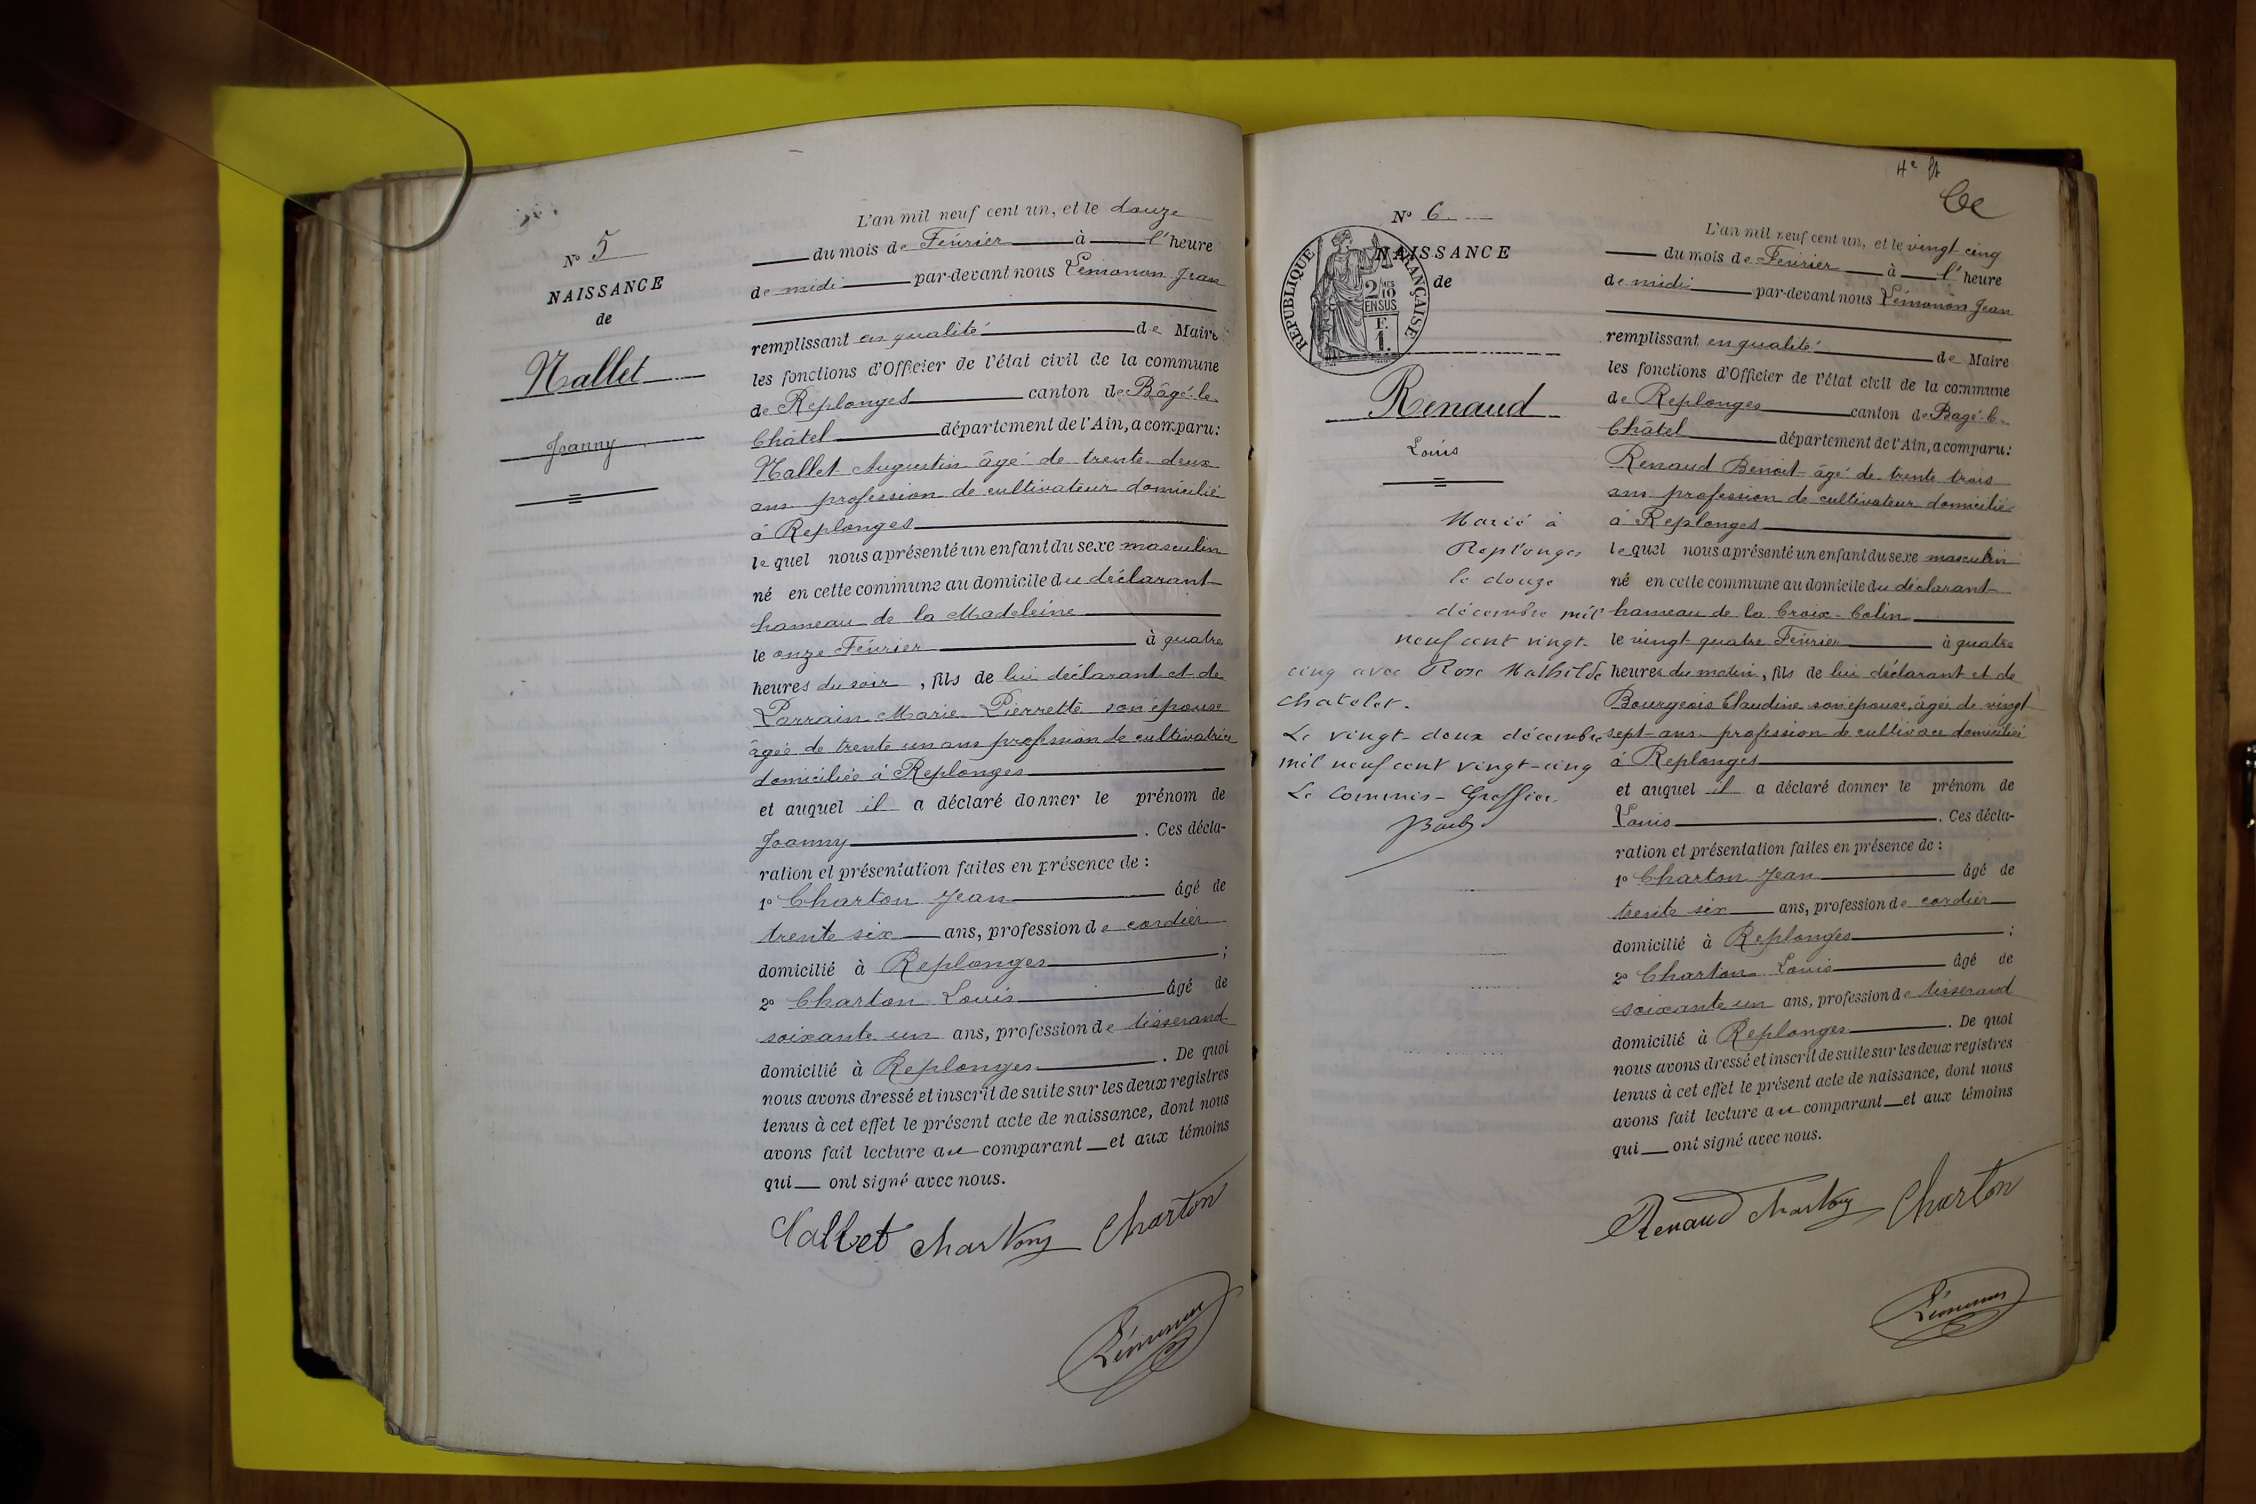 N° 5
NAISSANCE
de
Nallet
Joanny
L'an mil neuf cent un, et le douze
du mois de Février à l'heure
de midi par-devant nous Lémonon Jean
remplissant en qualité de Maire
les fonctions d'Officier de l'état civil de la commune
de Replonges canton de Bâgé-le-
Châtel département de l'Ain, a comparu:
Nallet Augustin âgé de trente-deux
ans profession de cultivateur domicilié
à Replonges
lequel nous a présenté un enfant du sexe masculin
né en cette commune au domicile du déclarant
hameau de la Madeleine
le onze Février à quatre
heures du soir, fils de lui déclarant et de
Parrain Marie Pierrette son épouse
âgée de trente un ans profession de cultivatrice
domiciliée à Replonges
et auquel il a déclaré donner le prénom de
Joanny. Ces décla-
ration et présentation faites en présence de :
1° Charton Jean âgé de
trente six ans, profession de cordier
domicilié à Replonges ;
2° Charton Louis âgé de
soixante un ans, profession de tisserand
domicilié à Replonges. De quoi
nous avons dressé et inscrit de suite sur les deux registres
tenus à cet effet le présent acte de naissance, dont nous
avons fait lecture au comparant et aux témoins
qui ont signé avec nous.
Nallet Charton Charton
Lémonon
4e
N° 6
NAISSANCE
de
RÉPUBLIQUE FRANÇAISE
2/10
EN SUS
F.
1.
Renaud
Louis
Marié à
Replonges
le douze
décembre mil
neuf cent vingt-
cinq avec Rose Mathilde
Chatelet.
Le vingt-deux décembre
mil neuf cent vingt-cinq
Le Commis-Greffier
L'an mil neuf cent un, et le vingt cinq
du mois de Février à l'heure
de midi par-devant nous Lémonon Jean
remplissant en qualité de Maire
les fonctions d'Officier de l'état civil de la commune
de Replonges canton de Bagé-le-
Châtel département de l'Ain, a comparu:
Renaud Benoit âgé de trente trois
ans profession de cultivateur domicilié
à Replonges
lequel nous a présenté un enfant du sexe masculin
né en cette commune au domicile du déclarant
hameau de la Croix-Colin
le vingt quatre Février à quatre
heures du matin, fils de lui déclarant et de
Bourgeois Claudine son épouse, âgée de vingt
sept ans profession de cultivace domiciliée
à Replonges
et auquel il a déclaré donner le prénom de
Louis. Ces décla-
ration et présentation faites en présence de :
1° Charton Jean âgé de
trente six ans, profession de cordier
domicilié à Replonges ;
2° Charton Louis âgé de
soixante un ans, profession de tisserand
domicilié à Replonges. De quoi
nous avons dressé et inscrit de suite sur les deux registres
tenus à cet effet le présent acte de naissance, dont nous
avons fait lecture au comparant et aux témoins
qui ont signé avec nous.
Renaud Charton Charton
Lémonon